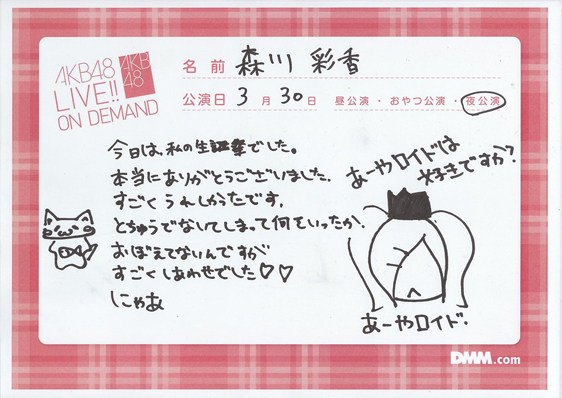 AKB48
LIVE!!
ON DEMAND
AKB
48
名前 森川 彩香
公演日 3月30日 昼公演・おやつ公演・夜公演
今日は、私の生誕祭でした。
本当にありがとうございました。
すごくうれしかったです。
とちゅうでないてしまって何をいったか、
おぼえてないんですが
すごくしあわせでした♡♡
にゃあ
あーやロイドは
好きですか?
あーやロイド.
DMM.com